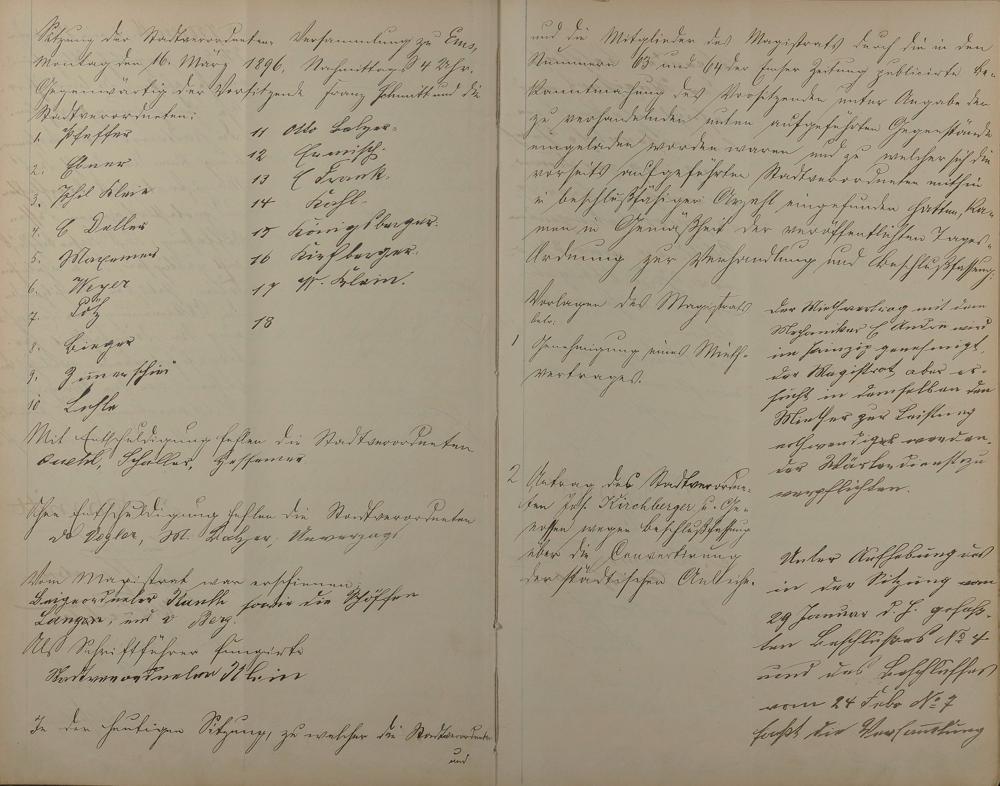 Sitzung der Stadtverordneten Versammlung zu Ems,
Montag den 16. März 1896, Nachmittags 4 Uhr.
Gegenwärtig der Vorsitzende Franz Schmitt und die
Stadtverordneten:
1. Pfeffer
2. Ebner
3. Phil Klein
4. C Deller
5.
6. Weyer
7.
8. Bieger
9.
10 Lehle
11 Otto Balzer.
12 Ermisch.
13 C Frank.
14 Kohl.
15 Königsberger.
16
17 W. Klein.
18
Mit Entschuldigung fehlen die Stadtverordneten
Schaller, Hessemer
Ohne Entschuldigung fehlen die Stadtverordneten
M. Balzer, Unverzagt
Vom Magistrat war erschienen:
Beigeordneter Kunkl sowie die Schöffen
und v Berg.
Als Schriftführer fungirte
Stadtverordneter Klein
In der heutigen Sitzung, zu welcher die Stadtverordneten
und
und die Mitglieder des Magistrats durch die in den
Nummern 63 und 64 der Emser Zeitung publicirte Be-
kanntmachung des Vorsitzenden unter Angabe der
zu verhandelnden unten aufgeführten Gegenstände
eingeladen worden waren und zu welcher sich die
vorseits aufgeführten Stadtverordneten mithin
in beschlußfähiger Anzahl eingefunden hatten, ka-
men in Gemäßheit der veröffentlichten Tages-
Ordnung zur Verhandlung und Beschlußfassung:
Vorlagen des Magistrats
betr:
1 Genehmigung eines Mieth-
vertrages.
Der Miethvertrag mit dem
Mechaniker C André wird
im Prinzip genehmigt,
der Magistrat aber er-
sucht in demselben den
Miether zur Leistung
nothwendig werden-
der zu
verpflichten.
2 Antrag des Stadtverordne-
ten Joh. Kirchberger u. Ge-
nossen wegen Beschlußfassung
über die Convertirung
der städtischen Anleihe.
Unter Aufhebung des
in der Sitzung vom
29 Januar d. J. gefaß-
ten Beschlusses No 4
und des Beschlusses
vom 24 Febr No 7
faßt die Versammlung